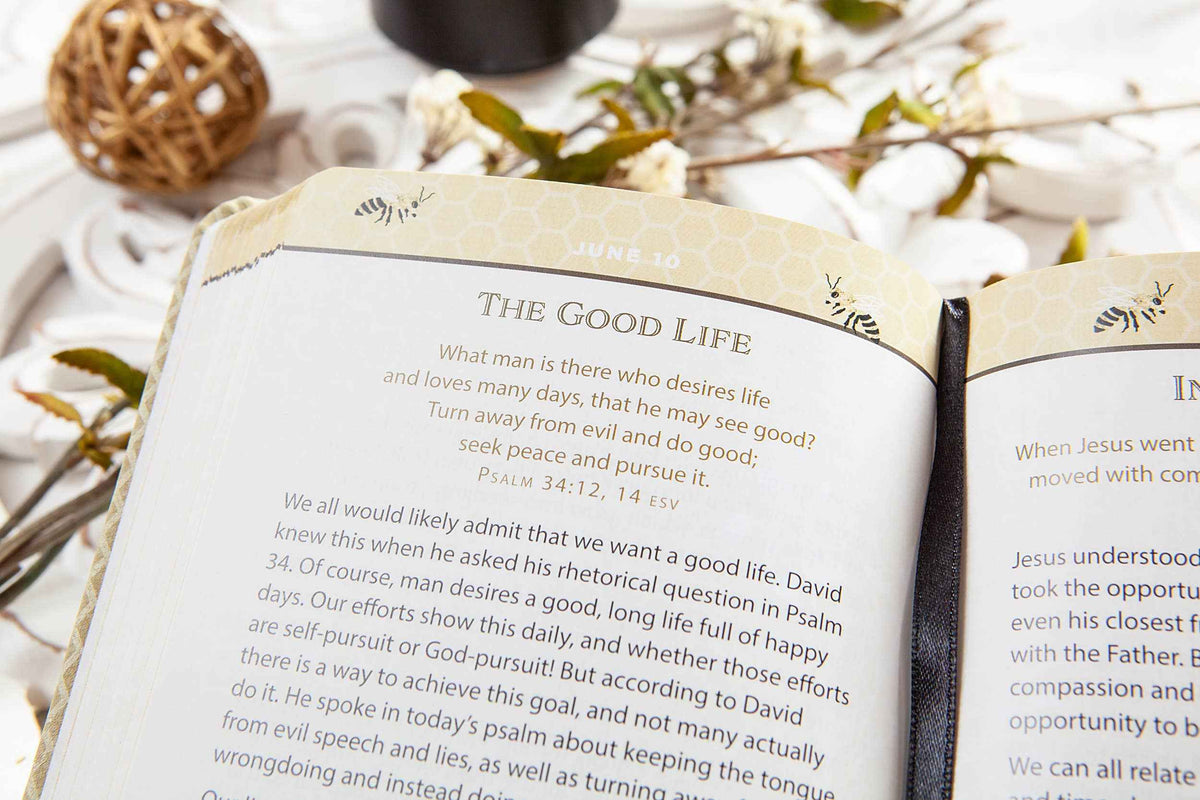 JUNE 10
THE GOOD LIFE
What man is there who desires life
and loves many days, that he may see good?
Turn away from evil and do good;
seek peace and pursue it.
PSALM 34:12, 14 ESV
We all would likely admit that we want a good life. David
knew this when he asked his rhetorical question in Psalm
34. Of course, man desires a good, long life full of happy
days. Our efforts show this daily, and whether those efforts
are self-pursuit or God-pursuit! But according to David
there is a way to achieve this goal, and not many actually
do it. He spoke in today's psalm about keeping the tongue
from evil speech and lies, as well as turning away
wrongdoing and instead
When Jesus went
moved with
Jesus understood
took the
even his closest
with the Father.
compassion and
opportunity to
We can all relate